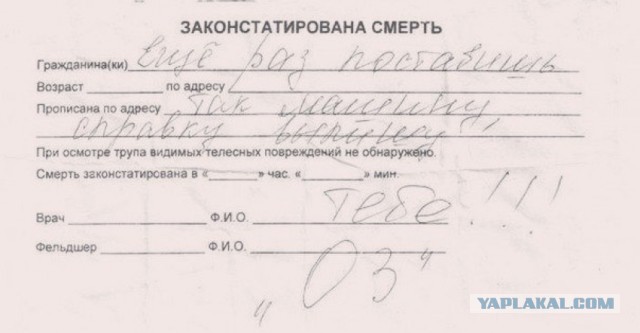 ЗАКОНСТАТИРОВАНА СМЕРТЬ
Гражданина(ки) ещё раз поставишь
Возраст по адресу
Прописана по адресу так машину,
справку выпишу
При осмотре трупа видимых телесных повреждений не обнаружено.
Смерть законстатирована в « » час. « » мин.
тебе!!!
Врач Ф.И.О.
Фельдшер Ф.И.О.
"03"
YAPLAKAL.COM